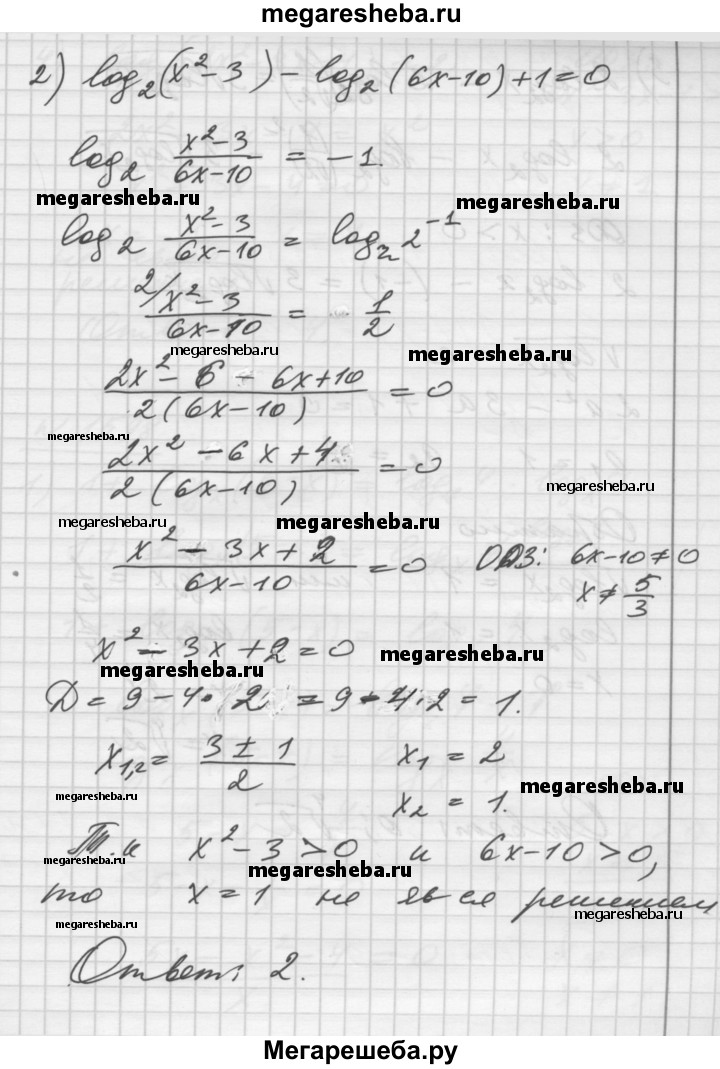 megaresheba.ru
2) log₂(x²-3) - log₂(6x-10)+1=0
log₂ (x²-3)/(6x-10) = -1.
megaresheba.ru megaresheba.ru
log₂ (x²-3)/(6x-10) = log₂ 2⁻¹
2/ (x²-3)/(6x-10) = 1/2
megaresheba.ru megaresheba.ru
(2x²-6-6x+10)/(2(6x-10)) = 0
megaresheba.ru
(2x²-6x+4)/(2(6x-10)) = 0
megaresheba.ru
megaresheba.ru megaresheba.ru
(x²-3x+2)/(6x-10) = 0 ОДЗ: 6x-10≠0
x≠5/3
x²-3x+2=0
megaresheba.ru megaresheba.ru
D=9-4·2=9-4·2=1.
x₁,₂= (3±1)/2 x₁=2
megaresheba.ru megaresheba.ru
x₂=1.
Т.к x²-3>0 и 6x-10>0,
megaresheba.ru megaresheba.ru
то x=1 не явся решением
megaresheba.ru megaresheba.ru
Ответ: 2.
Мегарешеба.ру